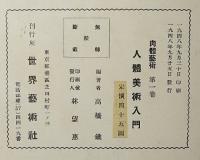 一九四八年九月二十日印刷
一九四八年九月廿五日發行
肉體藝術 第一巻
人體美術入門
定價四十五圓
無断
轉載
編著者 高橋鐵
印刷者 林望惠
東京都港區芝田村町一ノ
刊行所 世界藝術社